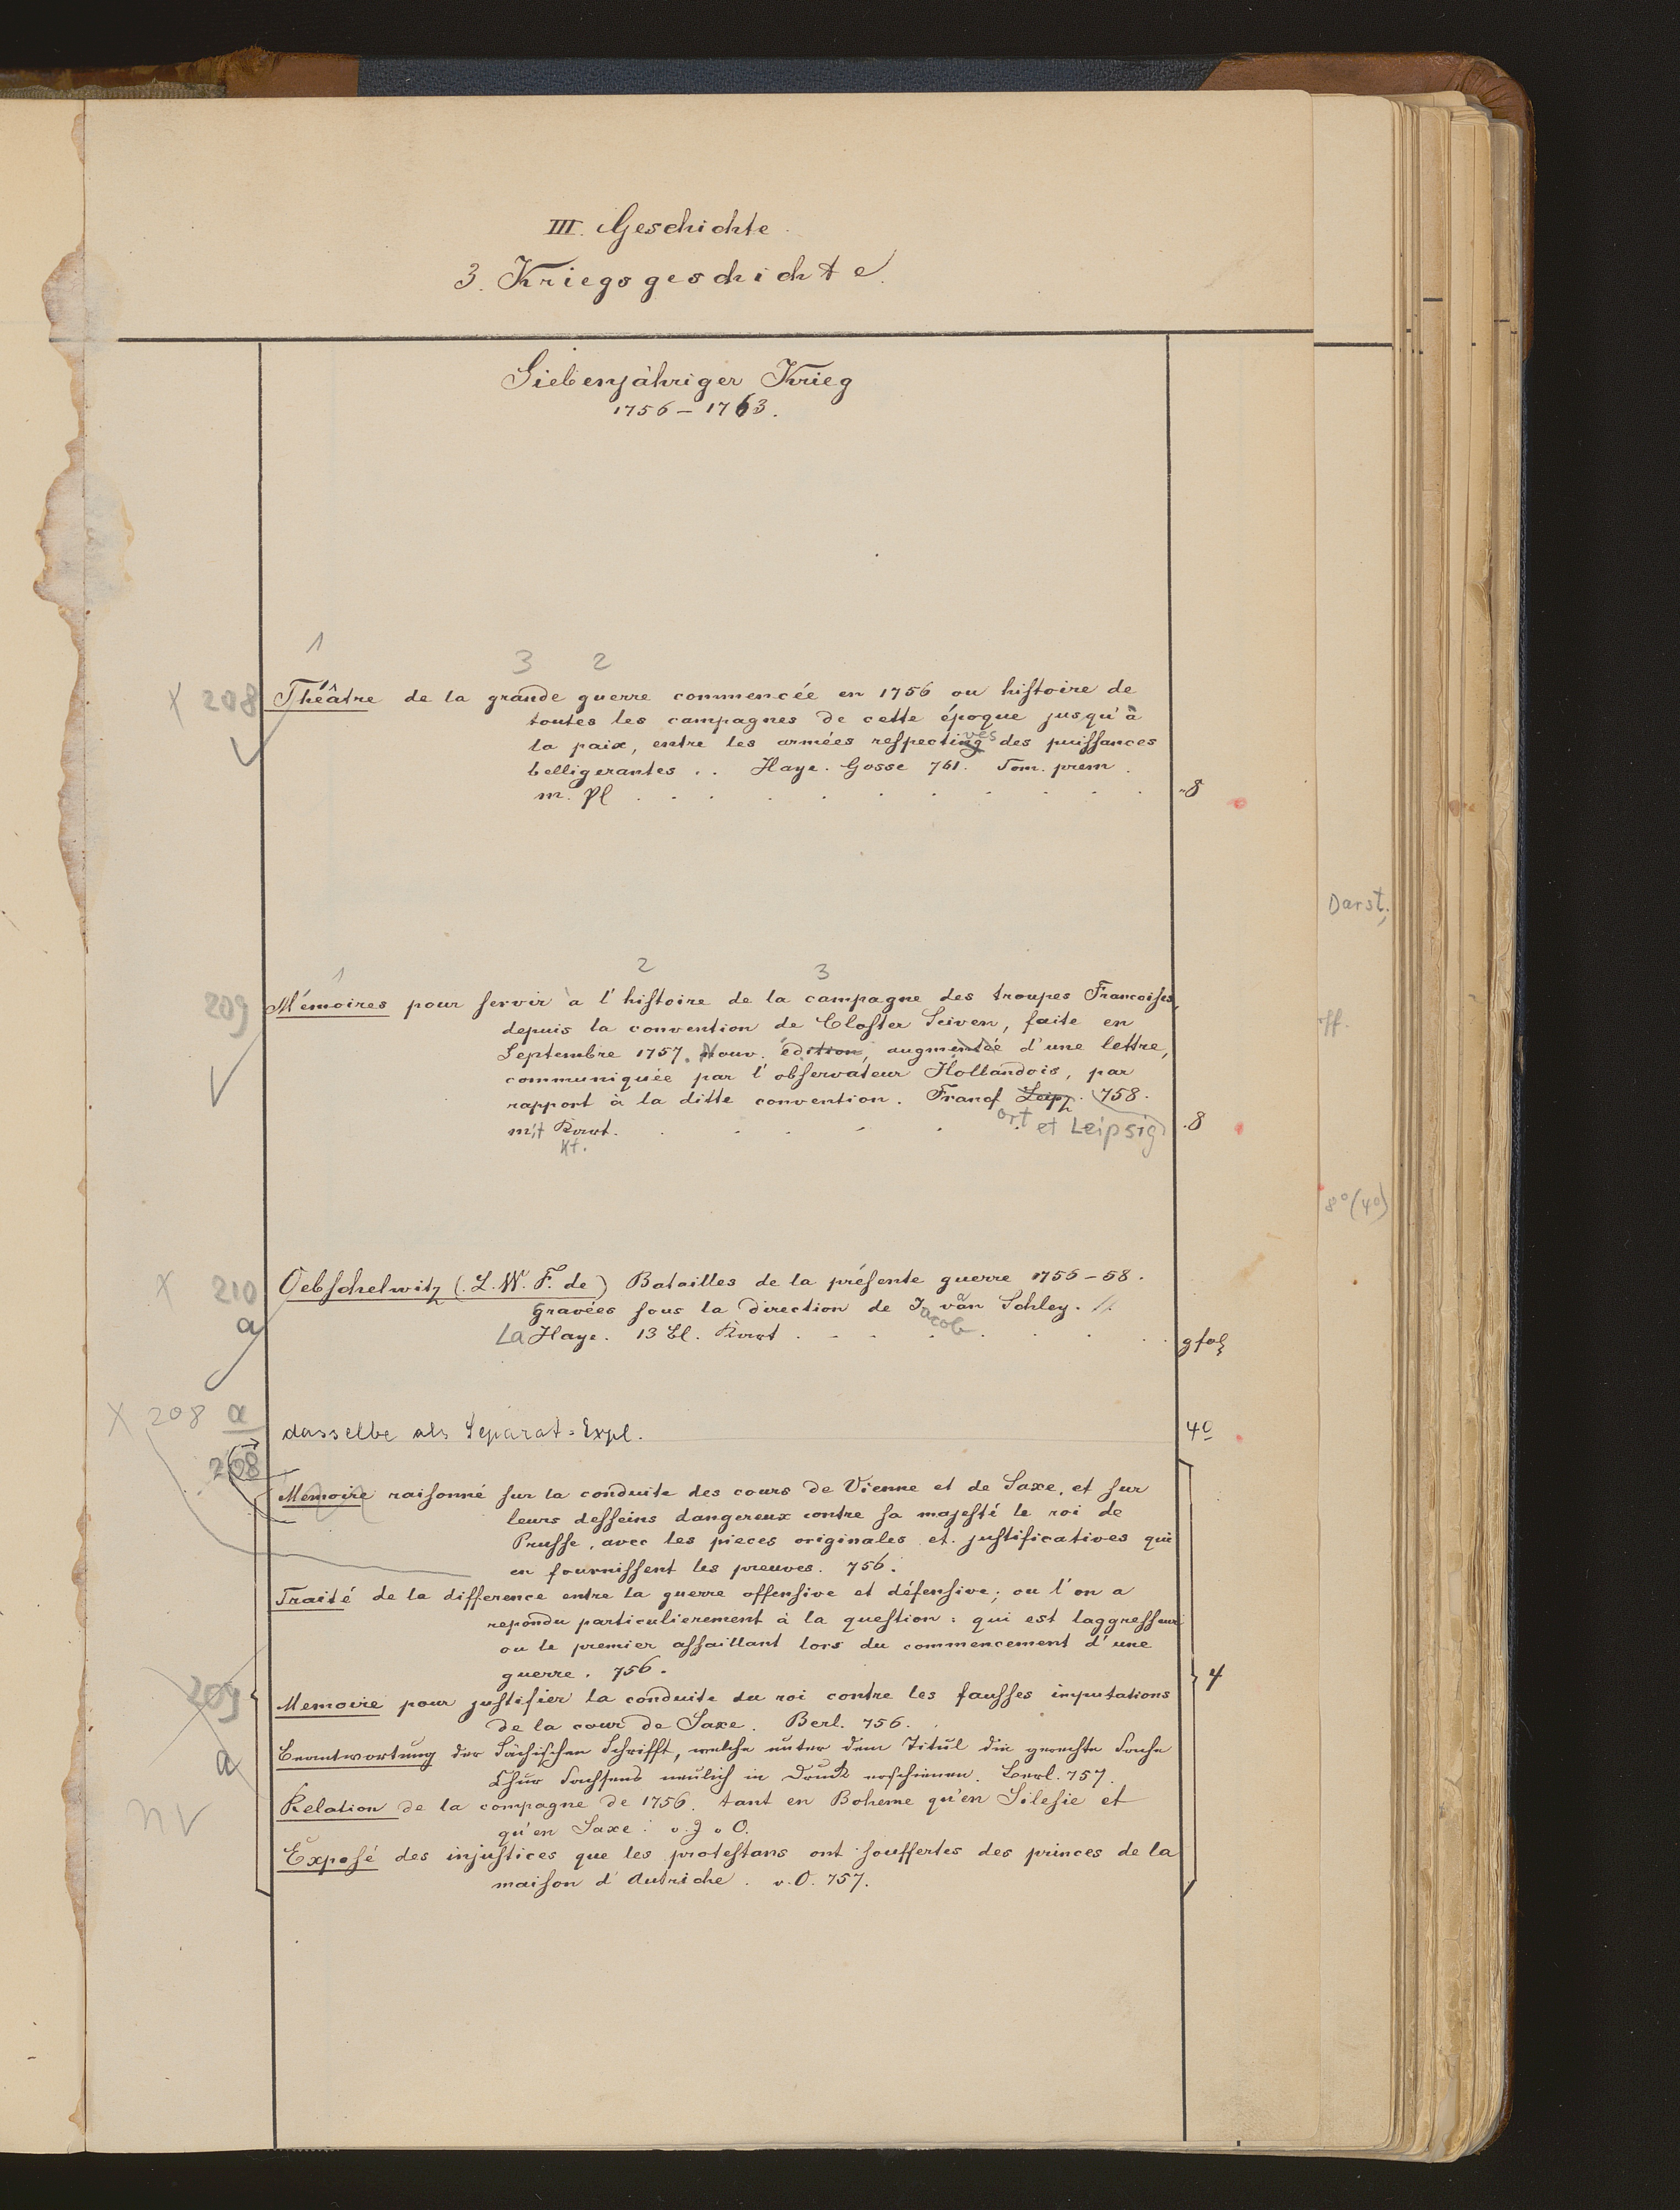 III. Geschichte
3. Kriegsgeschichte.
Siebenjähriger Krieg
1756 – 1763.
1
3 2
X 208 Théâtre de la grande guerre commencée en 1756 ou histoire de
toutes les campagnes de cette époque jusqu'à
la paix, entre les armées respectives des puissances
belligerantes . . Haye. Gosse 761. Tom. prem.
m. Pl 8
Darst.
1 2 3
209 Mémoires pour servir à l'histoire de la campagne des troupes Francoises,
ff.
depuis la convention de Closter Seiven, faite en
Septembre 1757. Nouv. édition, augmentée d'une lettre,
communiquée par l'observateur Hollandois, par
rapport à la ditte convention. Francf Leipz. 758.
ort et Leipsig
mit Kart. 8
Kt.
8° (4°)
X 210 Oebschelwitz (L. W. F. de) Batailles de la présente guerre 1756–58.
a gravées sous la direction de J van Schley. //
acob
La Haye. 13 Bl. Kart gfol
X 208 a dasselbe als Separat-Expl. 4°
208
Memoire raisonné sur la conduite des cours de Vienne et de Saxe, et sur
leurs desseins dangereux contre sa majesté le roi de
Prusse, avec les pieces originales et justificatives qui
en fournissent les preuves. 756.
Traité de la difference entre la guerre offensive et défensive; ou l'on a
repondu particulierement à la question: qui est laggresseur
ou le premier assaillant lors du commencement d'une
guerre. 756.
4
209 Memoire pour justifier la conduite du roi contre les fausses imputations
de la cour de Saxe. Berl. 756.
a Beantwortung der Sächischen Schrifft, welche unter dem Titul die gerechte Sache
Chur Sachsens neulich in Druck erschienen. Berl. 757.
nv Relation de la compagne de 1756. tant en Boheme qu'en Silesie et
qu'en Saxe. o. J u O.
Exposé des injustices que les protestans ont souffertes des princes de la
maison d'Autriche. o. O. 757.